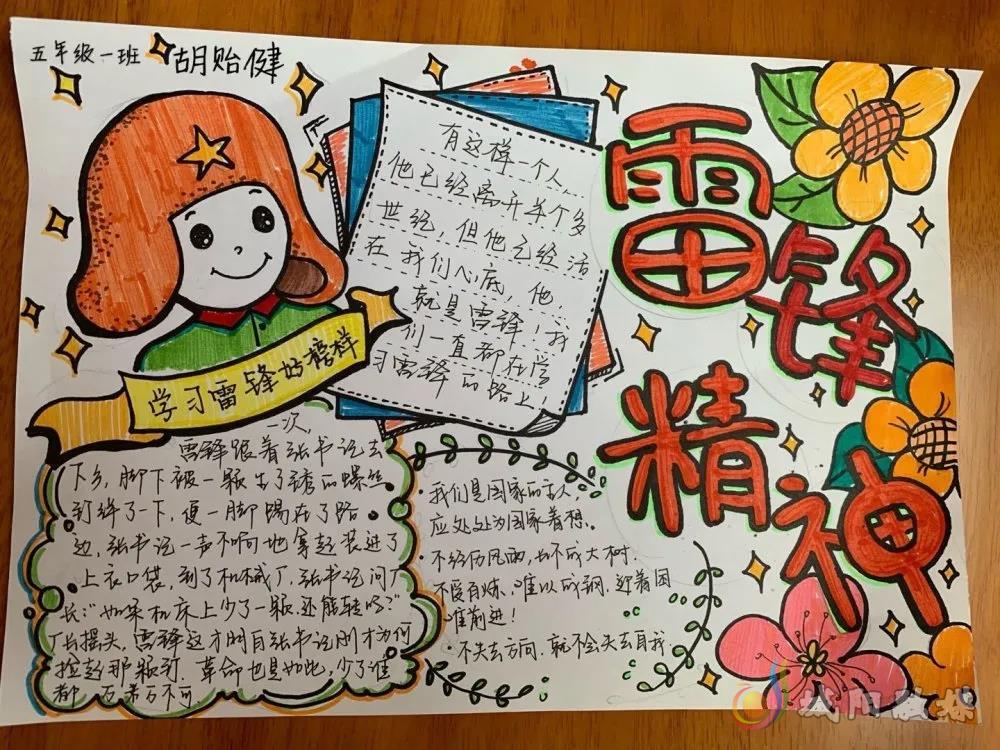 五年级一班 胡贻健
雷锋
精神
学习雷锋好榜样
有这样一个人，
他已经离开半个多
世纪，但他已经活
在我们心底，他，
就是雷锋！我
们一直都在学
习雷锋的路上！
一次，
雷锋跟着张书记去
下乡，脚下被一颗生了锈的螺丝
钉绊了一下，便一脚踢在了路
边，张书记一声不响地拿起装进了
上衣口袋，到了机械厂，张书记问厂
长："如果机床上少了一颗还能转吗？"
厂长摇头，雷锋这才明白张书记刚才为何
捡起那颗钉，革命也是如此，少了谁
都万万不可
我们是国家的主人
应处处为国家着想。
不经历风雨，长不成大树，
不受百炼，难以成钢，迎着困
难前进！
不失去方向，就不会失去自我